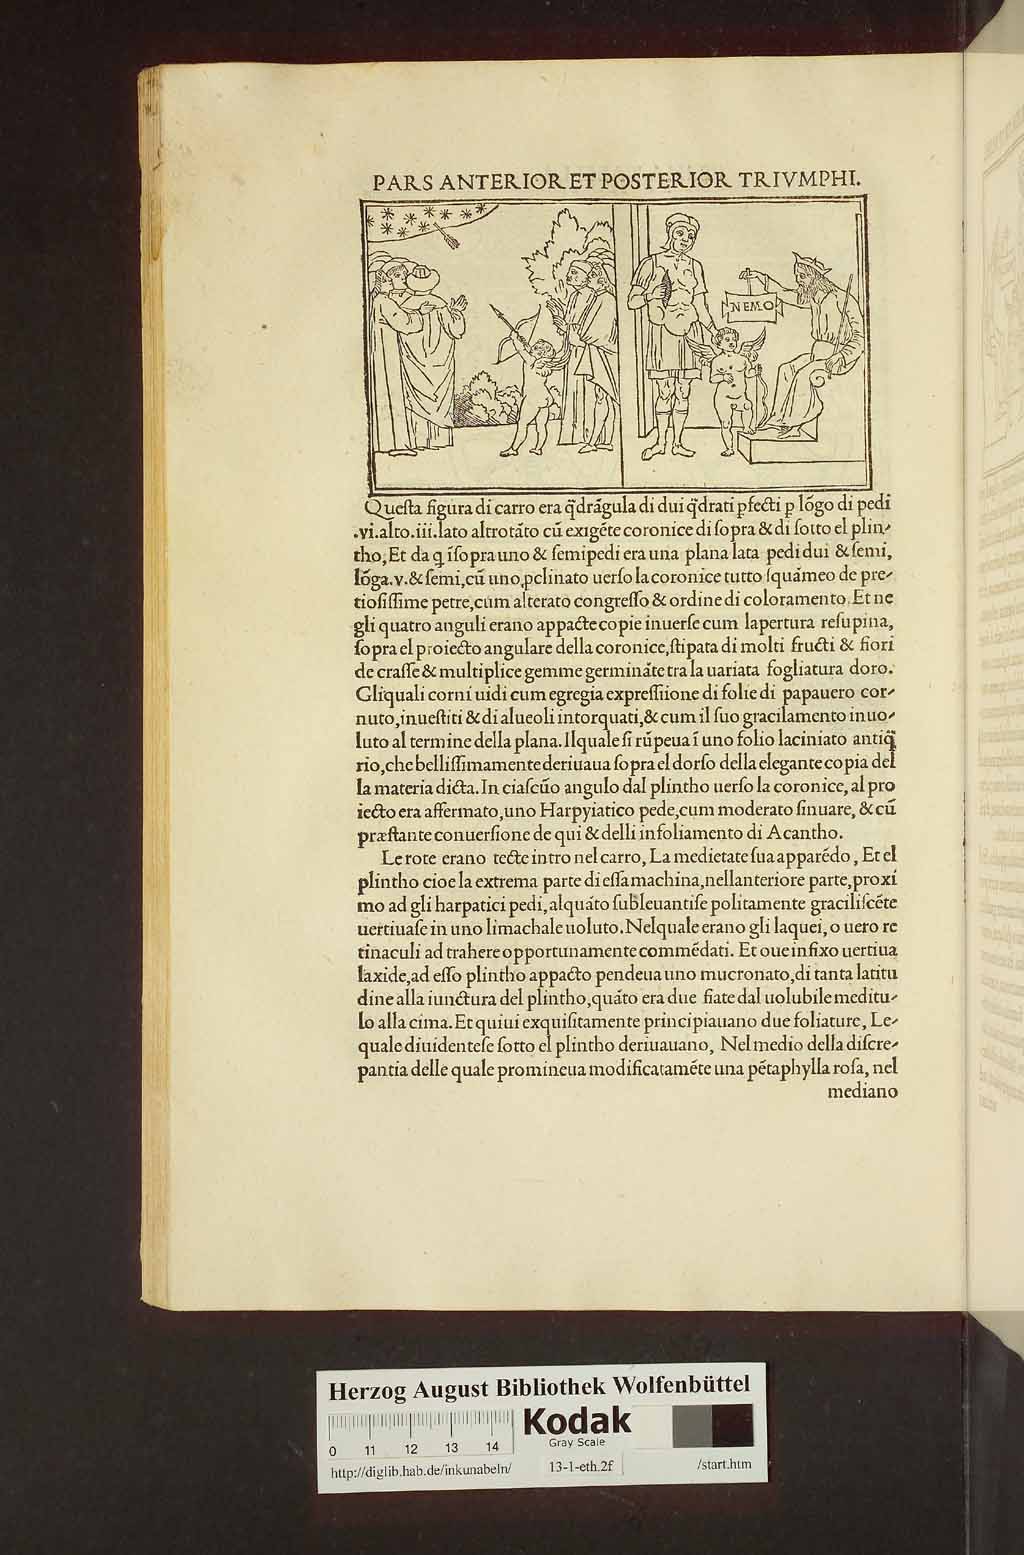 PARS ANTERIOR ET POSTERIOR TRIVMPHI.
NEMO
Queſta figura di carro era q̃drãgula di dui q̃drati ꝑfecti ꝑ lõgo di pedi
.vi.alto.iii.lato altrotãto cũ exigẽte coronice di ſopra & di ſotto el plin-
tho, Et da q̃ iſopra uno & ſemipedi era una plana lata pedi dui & ſemi,
lõga.v.& ſemi, cũ uno ꝓclinato uerſo la coronice tutto ſquãmeo de pre-
tioſiſſime petre, cum alterato congreſſo & ordine di coloramento. Et ne
gli quatro anguli erano appacte copie inuerſe cum lapertura reſupina,
ſopra el proiecto angulare della coronice, ſtipata di molti fructi & fiori
de craſſe & multiplice gemme germinãte tra la uariata fogliatura doro.
Gliquali corni uidi cum egregia expreſſiione di folie di papauero cor-
nuto, inueſtiti & di alueoli intorquati, & cum il ſuo gracilamento inuo-
luto al termine della plana. Ilquale ſi rũpeua ĩ uno folio laciniato antiq̃
rio, che belliſſimamente deriuaua ſopra el dorſo della elegante copia del
la materia dicta. In ciaſcũo angulo dal plintho uerſo la coronice, al pro
iecto era affermato, uno Harpyiatico pede, cum moderato ſinuare, & cũ
præſtante conuerſione de qui & delli infoliamento di Acantho.
Le rote erano tecte intro nel carro, La medietate ſua apparẽdo, Et el
plintho cioe la extrema parte di eſſa machina, nellanteriore parte, proxi
mo ad gli harpatici pedi, alquãto ſubleuantiſe politamente graciliſcẽte
uertiuaſe in uno limachale uoluto. Nelquale erano gli laquei, o uero re
tinaculi ad trahere opportunamente commẽdati. Et oue infixo uertiua
laxide, ad eſſo plintho appacto pendeua uno mucronato, di tanta latitu
dine alla iunctura del plintho, quãto era due fiate dal uolubile meditu-
lo alla cima. Et quiui exquiſitamente principiauano due foliature, Le-
quale diuidenteſe ſotto el plintho deriuauano, Nel medio della diſcre-
pantia delle quale promineua modificatamẽte una pẽtaphylla roſa, nel
mediano
Herzog August Bibliothek Wolfenbüttel
Kodak
Gray Scale
0 11 12 13 14
http://diglib.hab.de/inkunabeln/ 13-1-eth.2f /start.htm